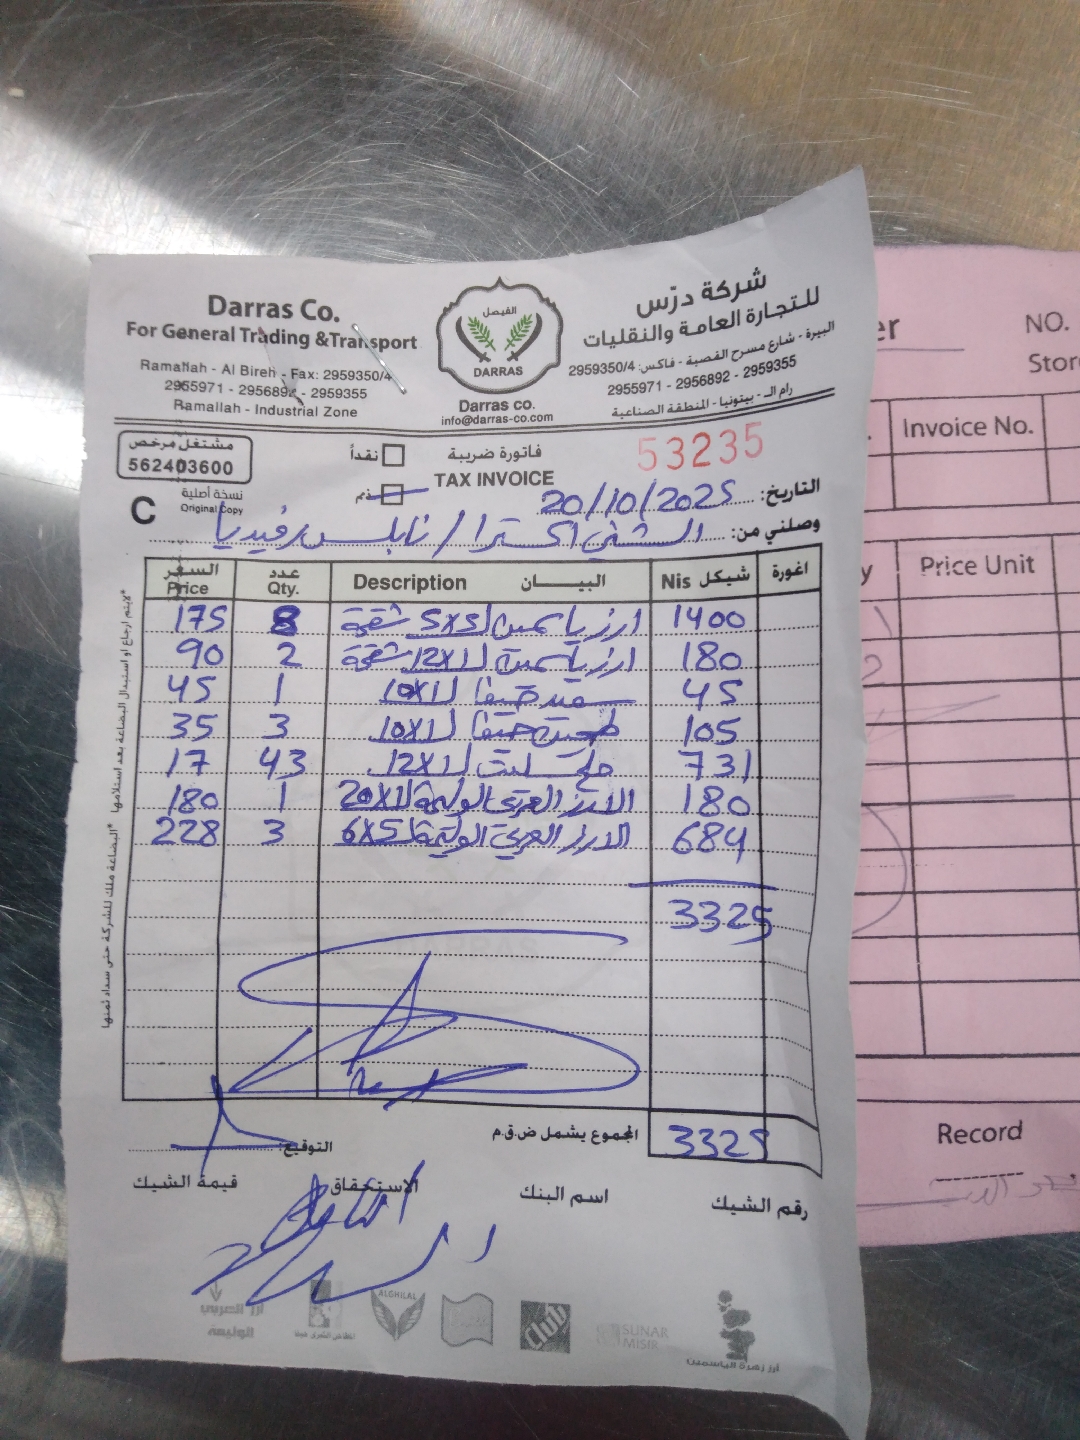 Darras Co.
For General Trading &Transport
Ramallah - Al Bireh - Fax: 2959350/4
2955971 - 2956892 - 2959355
Ramallah - Industrial Zone
الفيصل
DARRAS
Darras co.
info@darras-co.com
شركة درّس
للتجارة العامة والنقليات
البيرة - شارع مسرح القصبة - فاكس: 2959350/4
2955971 - 2956892 - 2959355
رام الـ - بيتونيا - المنطقة الصناعية
مشتغل مرخص
562403600
نقداً
ذمم
فاتورة ضريبة
TAX INVOICE
53235
C
نسخة أصلية
Original Copy
التاريخ: 20/10/2025
وصلني من: الشني اكسترا / نابلس رفيديا
السعر Price عدد Qty. Description البيـــان شيكل Nis اغورة
175 8 ارز ياسمين 5x5ك شقحة 1400
90 2 ارز ياسمين 12x1ك شقحة 180
45 1 سميد حيفا 10x1ك 45
35 3 طحين حيفا 10x1ك 105
17 43 ملح سليت 12x1ك 731
180 1 الارز العربي الوليمة 20x1ك 180
228 3 الارز العربي الوليمة 6x5ك 684
3325
المجموع يشمل ض.ق.م 3325
التوقيع:
رقم الشيك اسم البنك الإستحقاق قيمة الشيك
*لايتم ارجاع او استبدال البضاعة بعد استلامها
*البضاعة ملك للشركة حتى سداد ثمنها
أرز العربي
الوليمة
ALGHILAL
Club
SUNAR
MISIR
أرز زهرة الياسمين
er
NO.
Stor
Invoice No.
y
Price Unit
Record